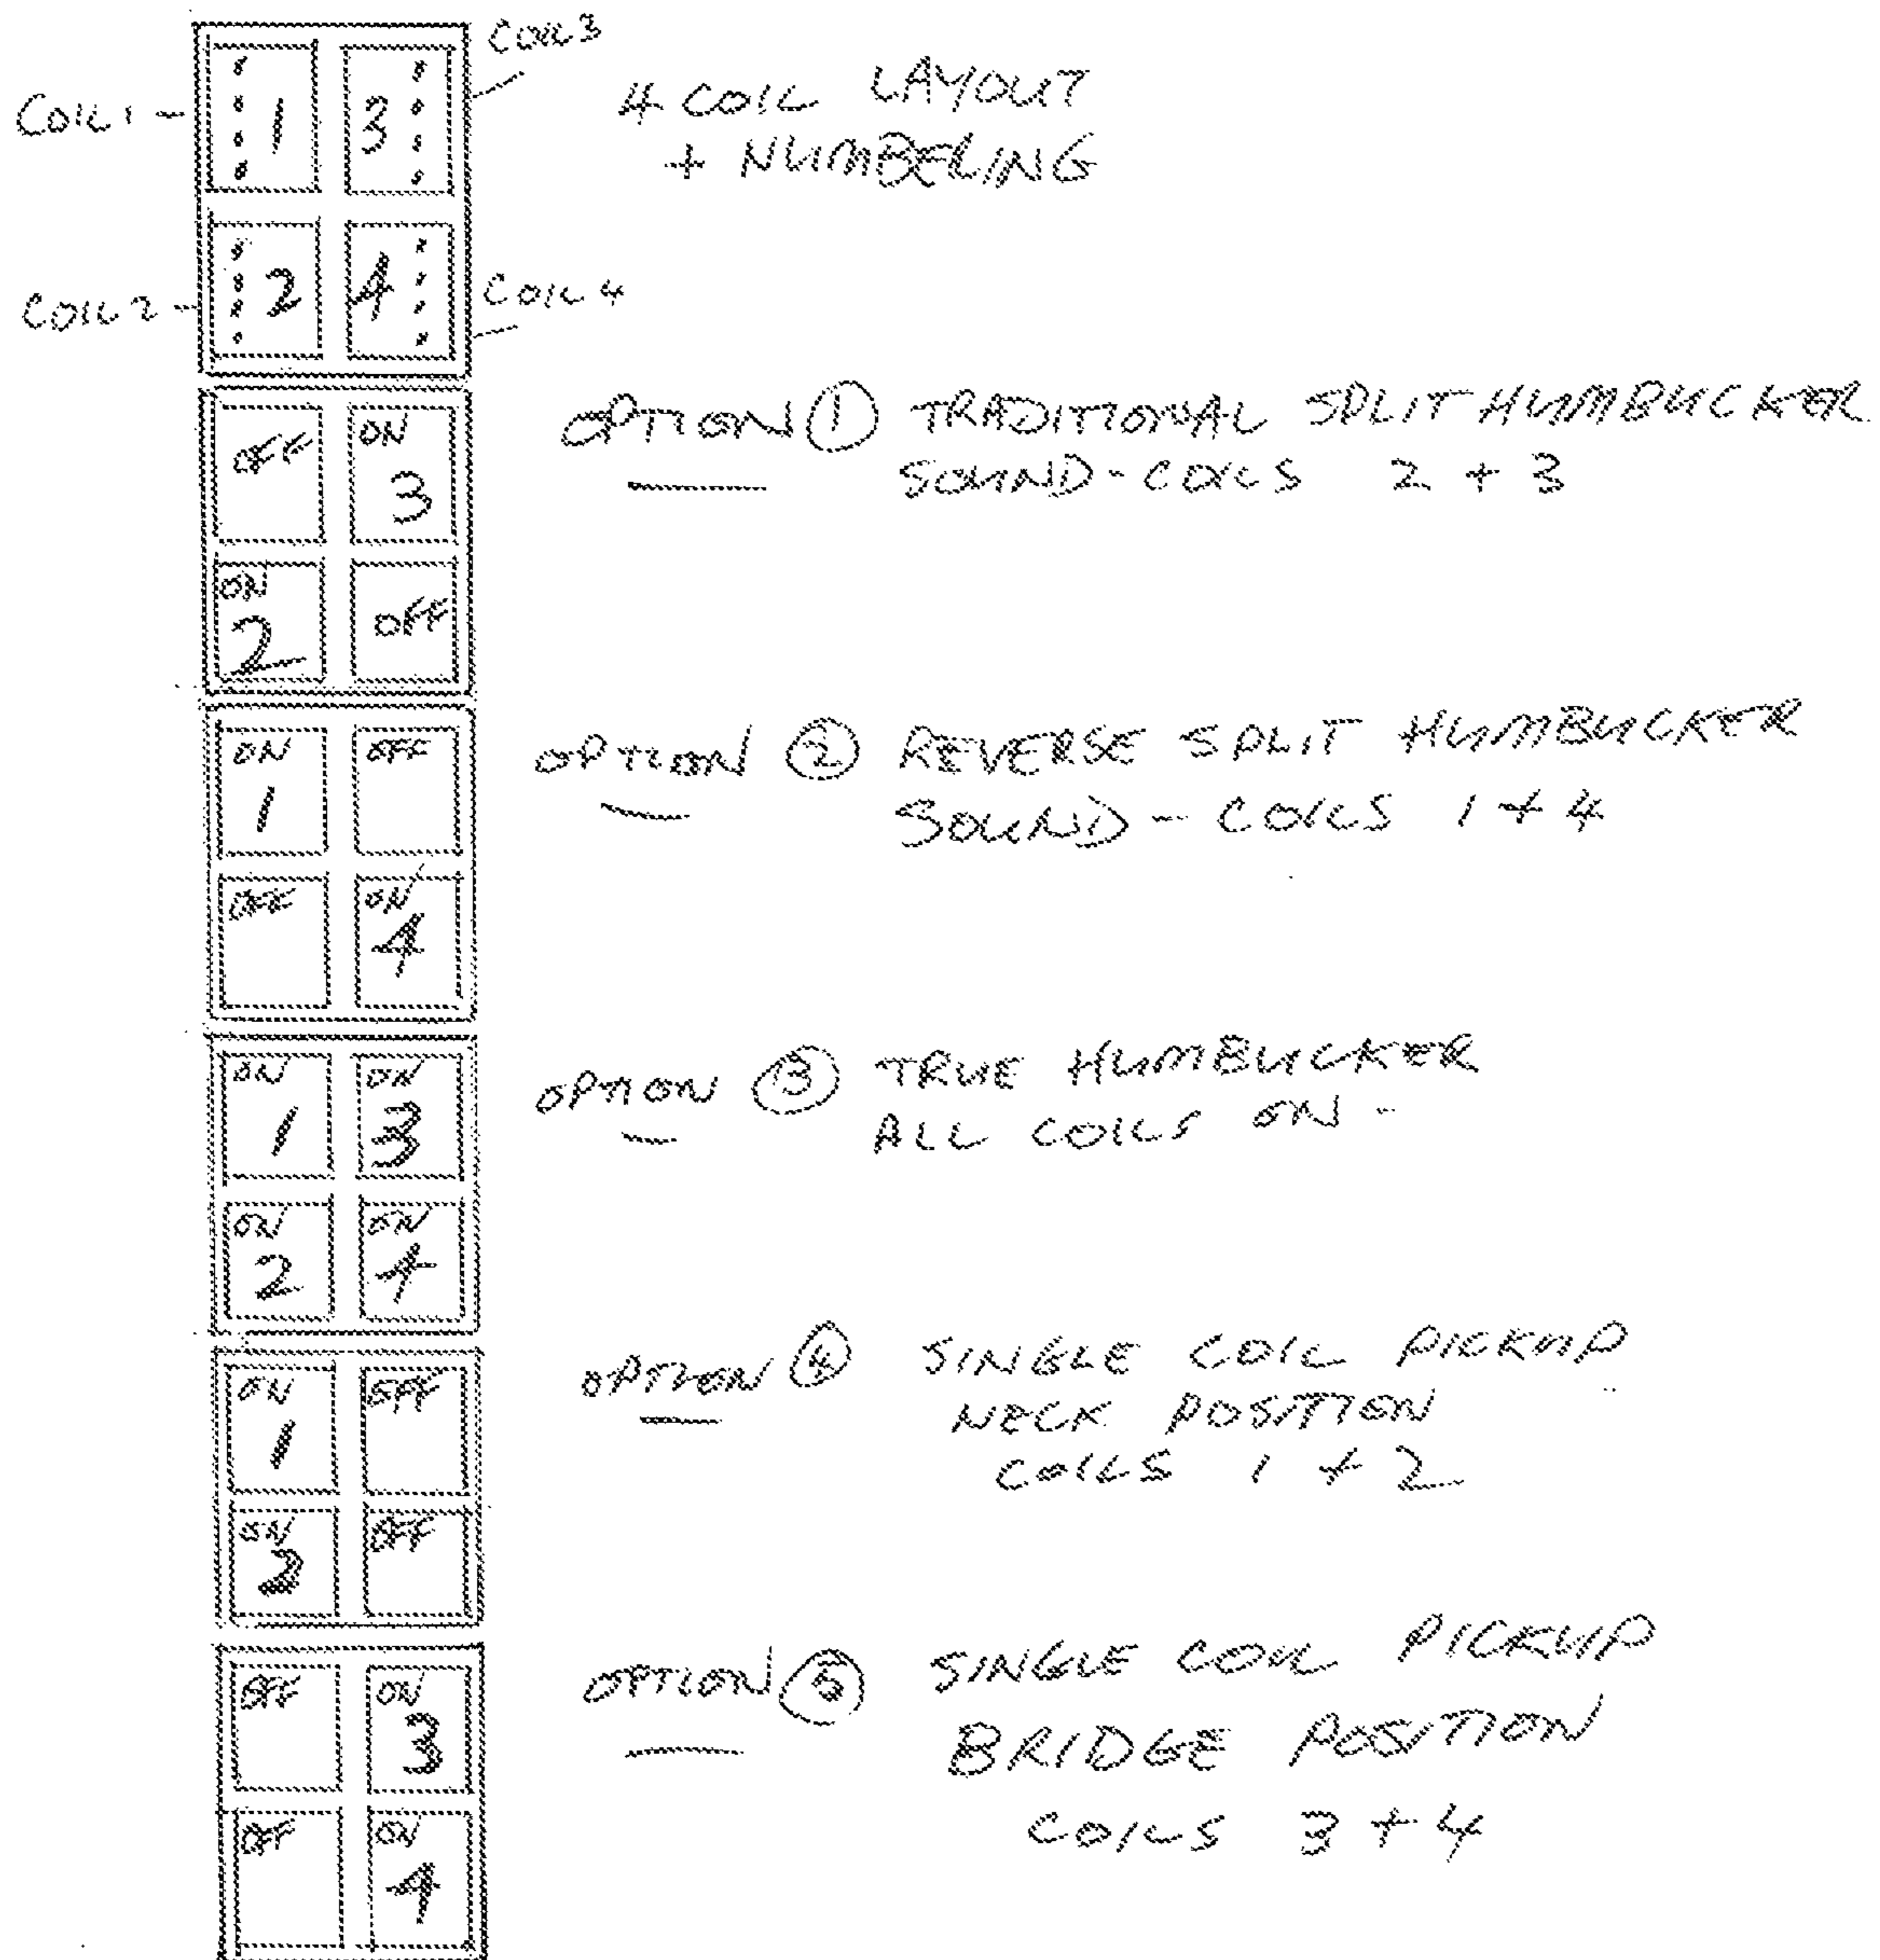 COIL 3
COIL 1
1 3
4 COIL LAYOUT
+ NUMBERING
COIL 2
2 4
COIL 4
OFF ON
3
ON OFF
2
OPTION 1 TRADITIONAL SPLIT HUMBUCKER
SOUND - COILS 2 + 3
ON OFF
1
OFF ON
4
OPTION 2 REVERSE SPLIT HUMBUCKER
SOUND - COILS 1 + 4
ON ON
1 3
ON ON
2 4
OPTION 3 TRUE HUMBUCKER
ALL COILS ON -
ON OFF
1
ON OFF
2
OPTION 4 SINGLE COIL PICKUP
NECK POSITION
COILS 1 + 2
OFF ON
3
OFF ON
4
OPTION 5 SINGLE COIL PICKUP
BRIDGE POSITION
COILS 3 + 4